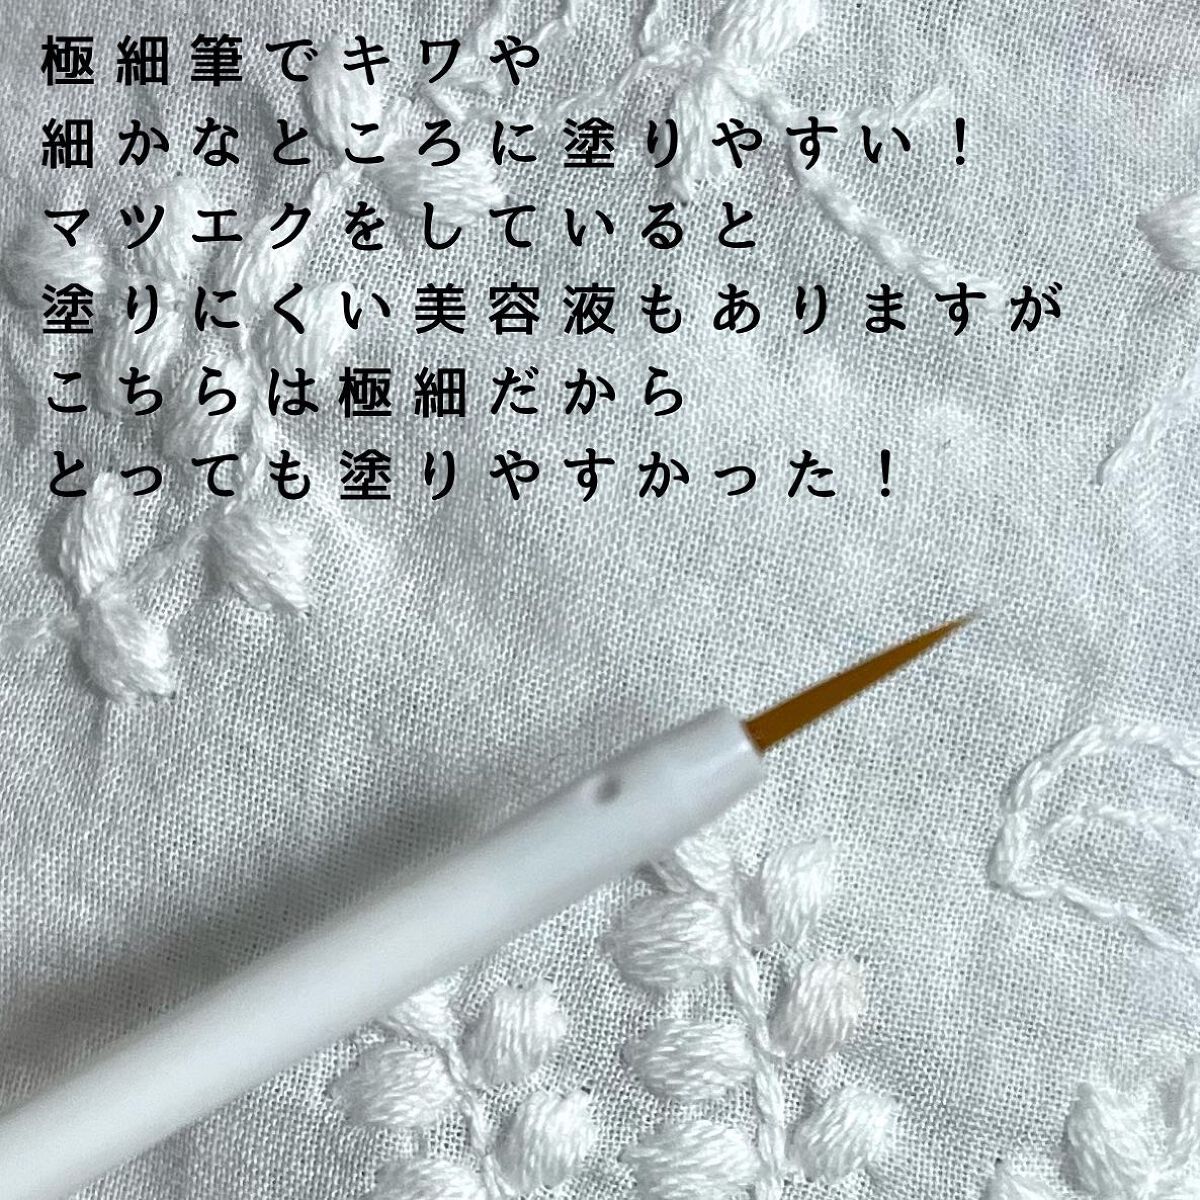 極細筆でキワや
細かなところに塗りやすい！
マツエクをしていると
塗りにくい美容液もありますが
こちらは極細だから
とっても塗りやすかった！